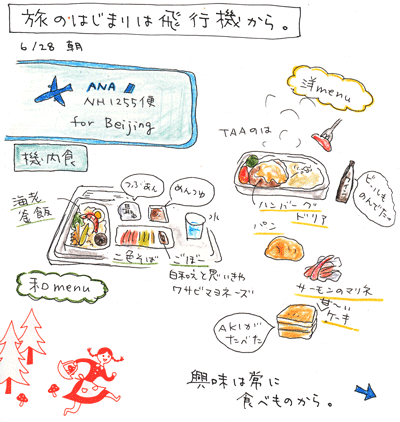 旅のはじまりは飛行機から。
6/28 朝
ANA
NH1255便
for Beijing
機内食
洋menu
TAAのは
ビールも
のんでた。
ハンバーグ
ドリア
パン
サーモンのマリネ
甘〜い
ケーキ
AKIが
たべた
つぶあん
めんつゆ
海老
釜飯
水
二色そば
ごぼー
白和えと思いきや
ワサビマヨネーズ
和menu
興味は常に
食べものから。